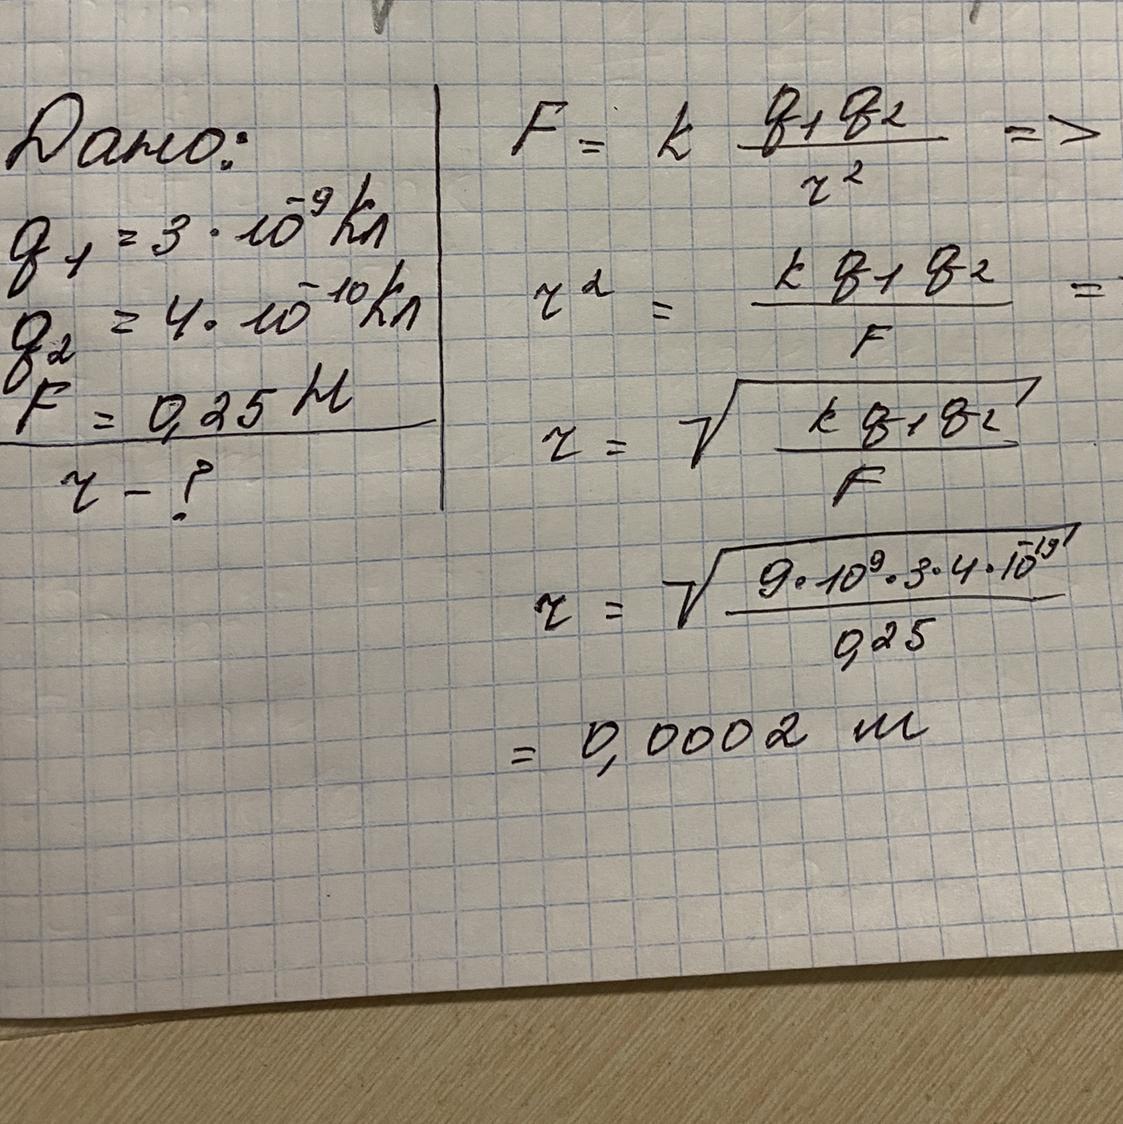 Дано:
q₁ = 3 · 10⁻⁹ Кл
q₂ = 4 · 10⁻¹⁰ Кл
F = 0,25 Н
r - ?
F = k q₁ q₂ / r² =>
r² = k q₁ q₂ / F =
r = √(k q₁ q₂ / F)
r = √(9 · 10⁹ · 3 · 4 · 10⁻¹⁹ / 0,25)
= 0,0002 м